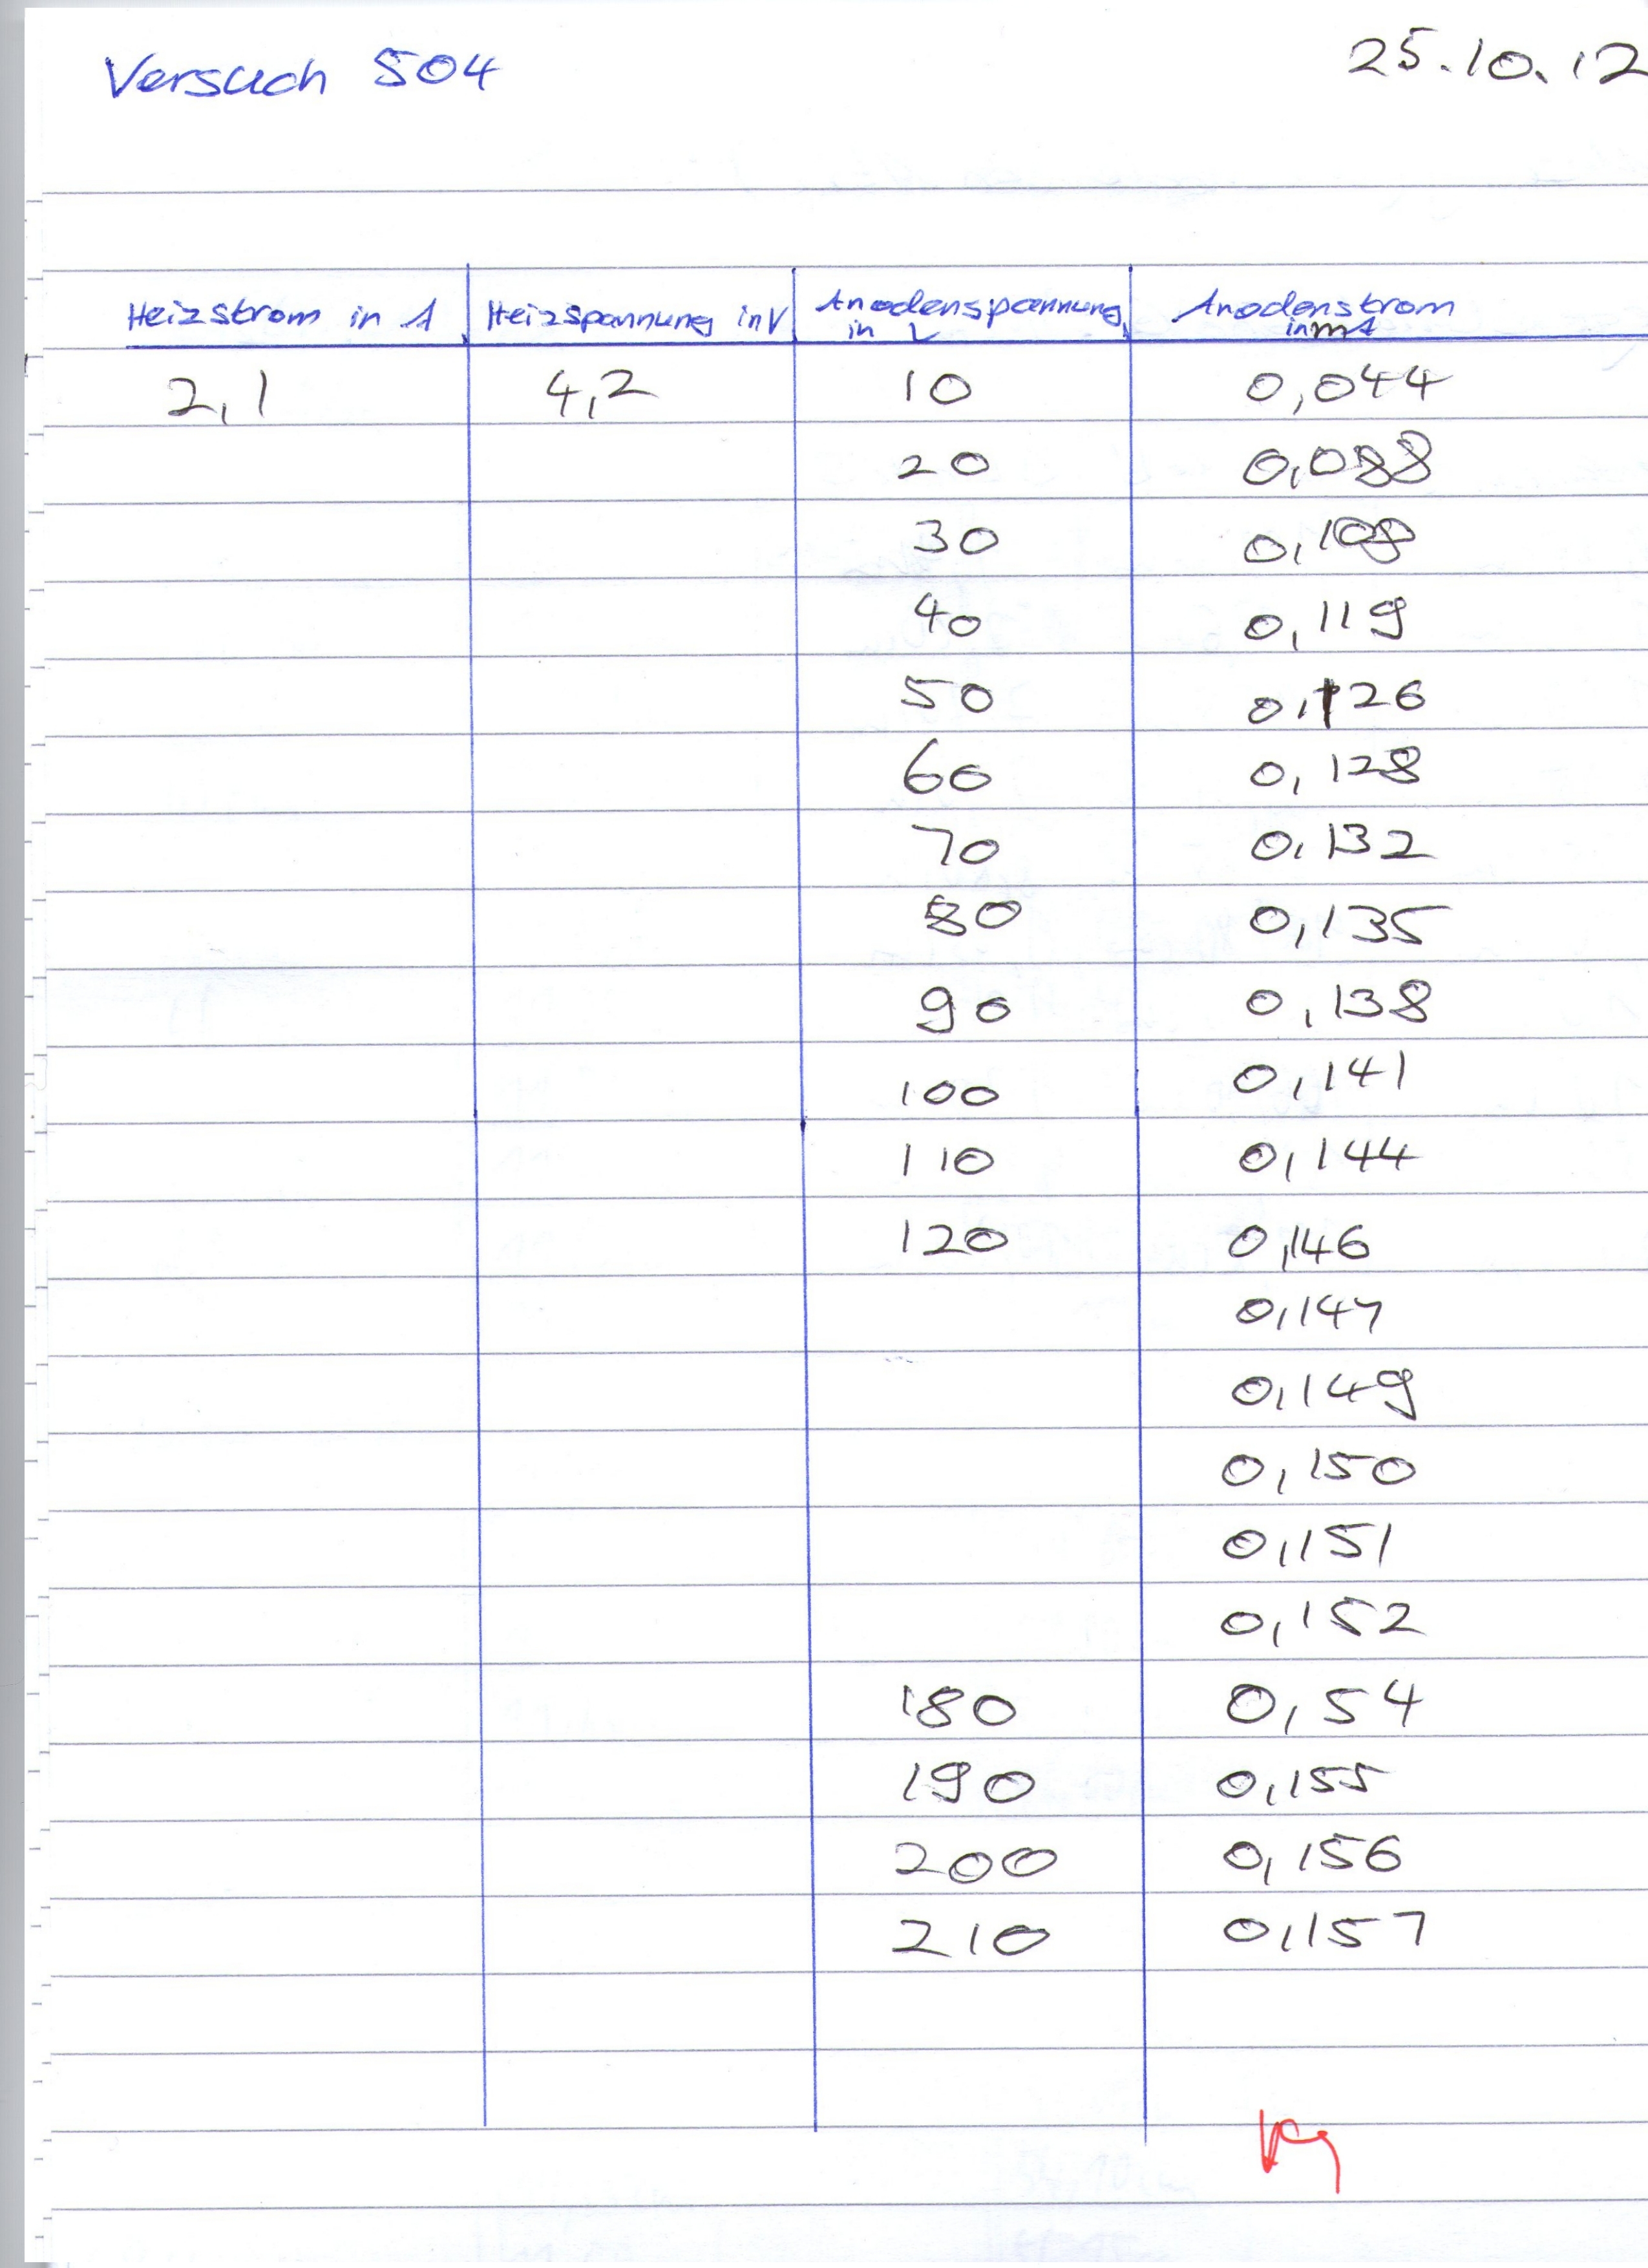 Versuch 504 25.10.12
Heizstrom in A Heizspannung in V Anodenspannung in V Anodenstrom in mA
2,1 4,2 10 0,044
20 0,088
30 0,108
40 0,119
50 0,126
60 0,128
70 0,132
80 0,135
90 0,138
100 0,141
110 0,144
120 0,146
0,147
0,149
0,150
0,151
0,152
180 0,54
190 0,155
200 0,156
210 0,157